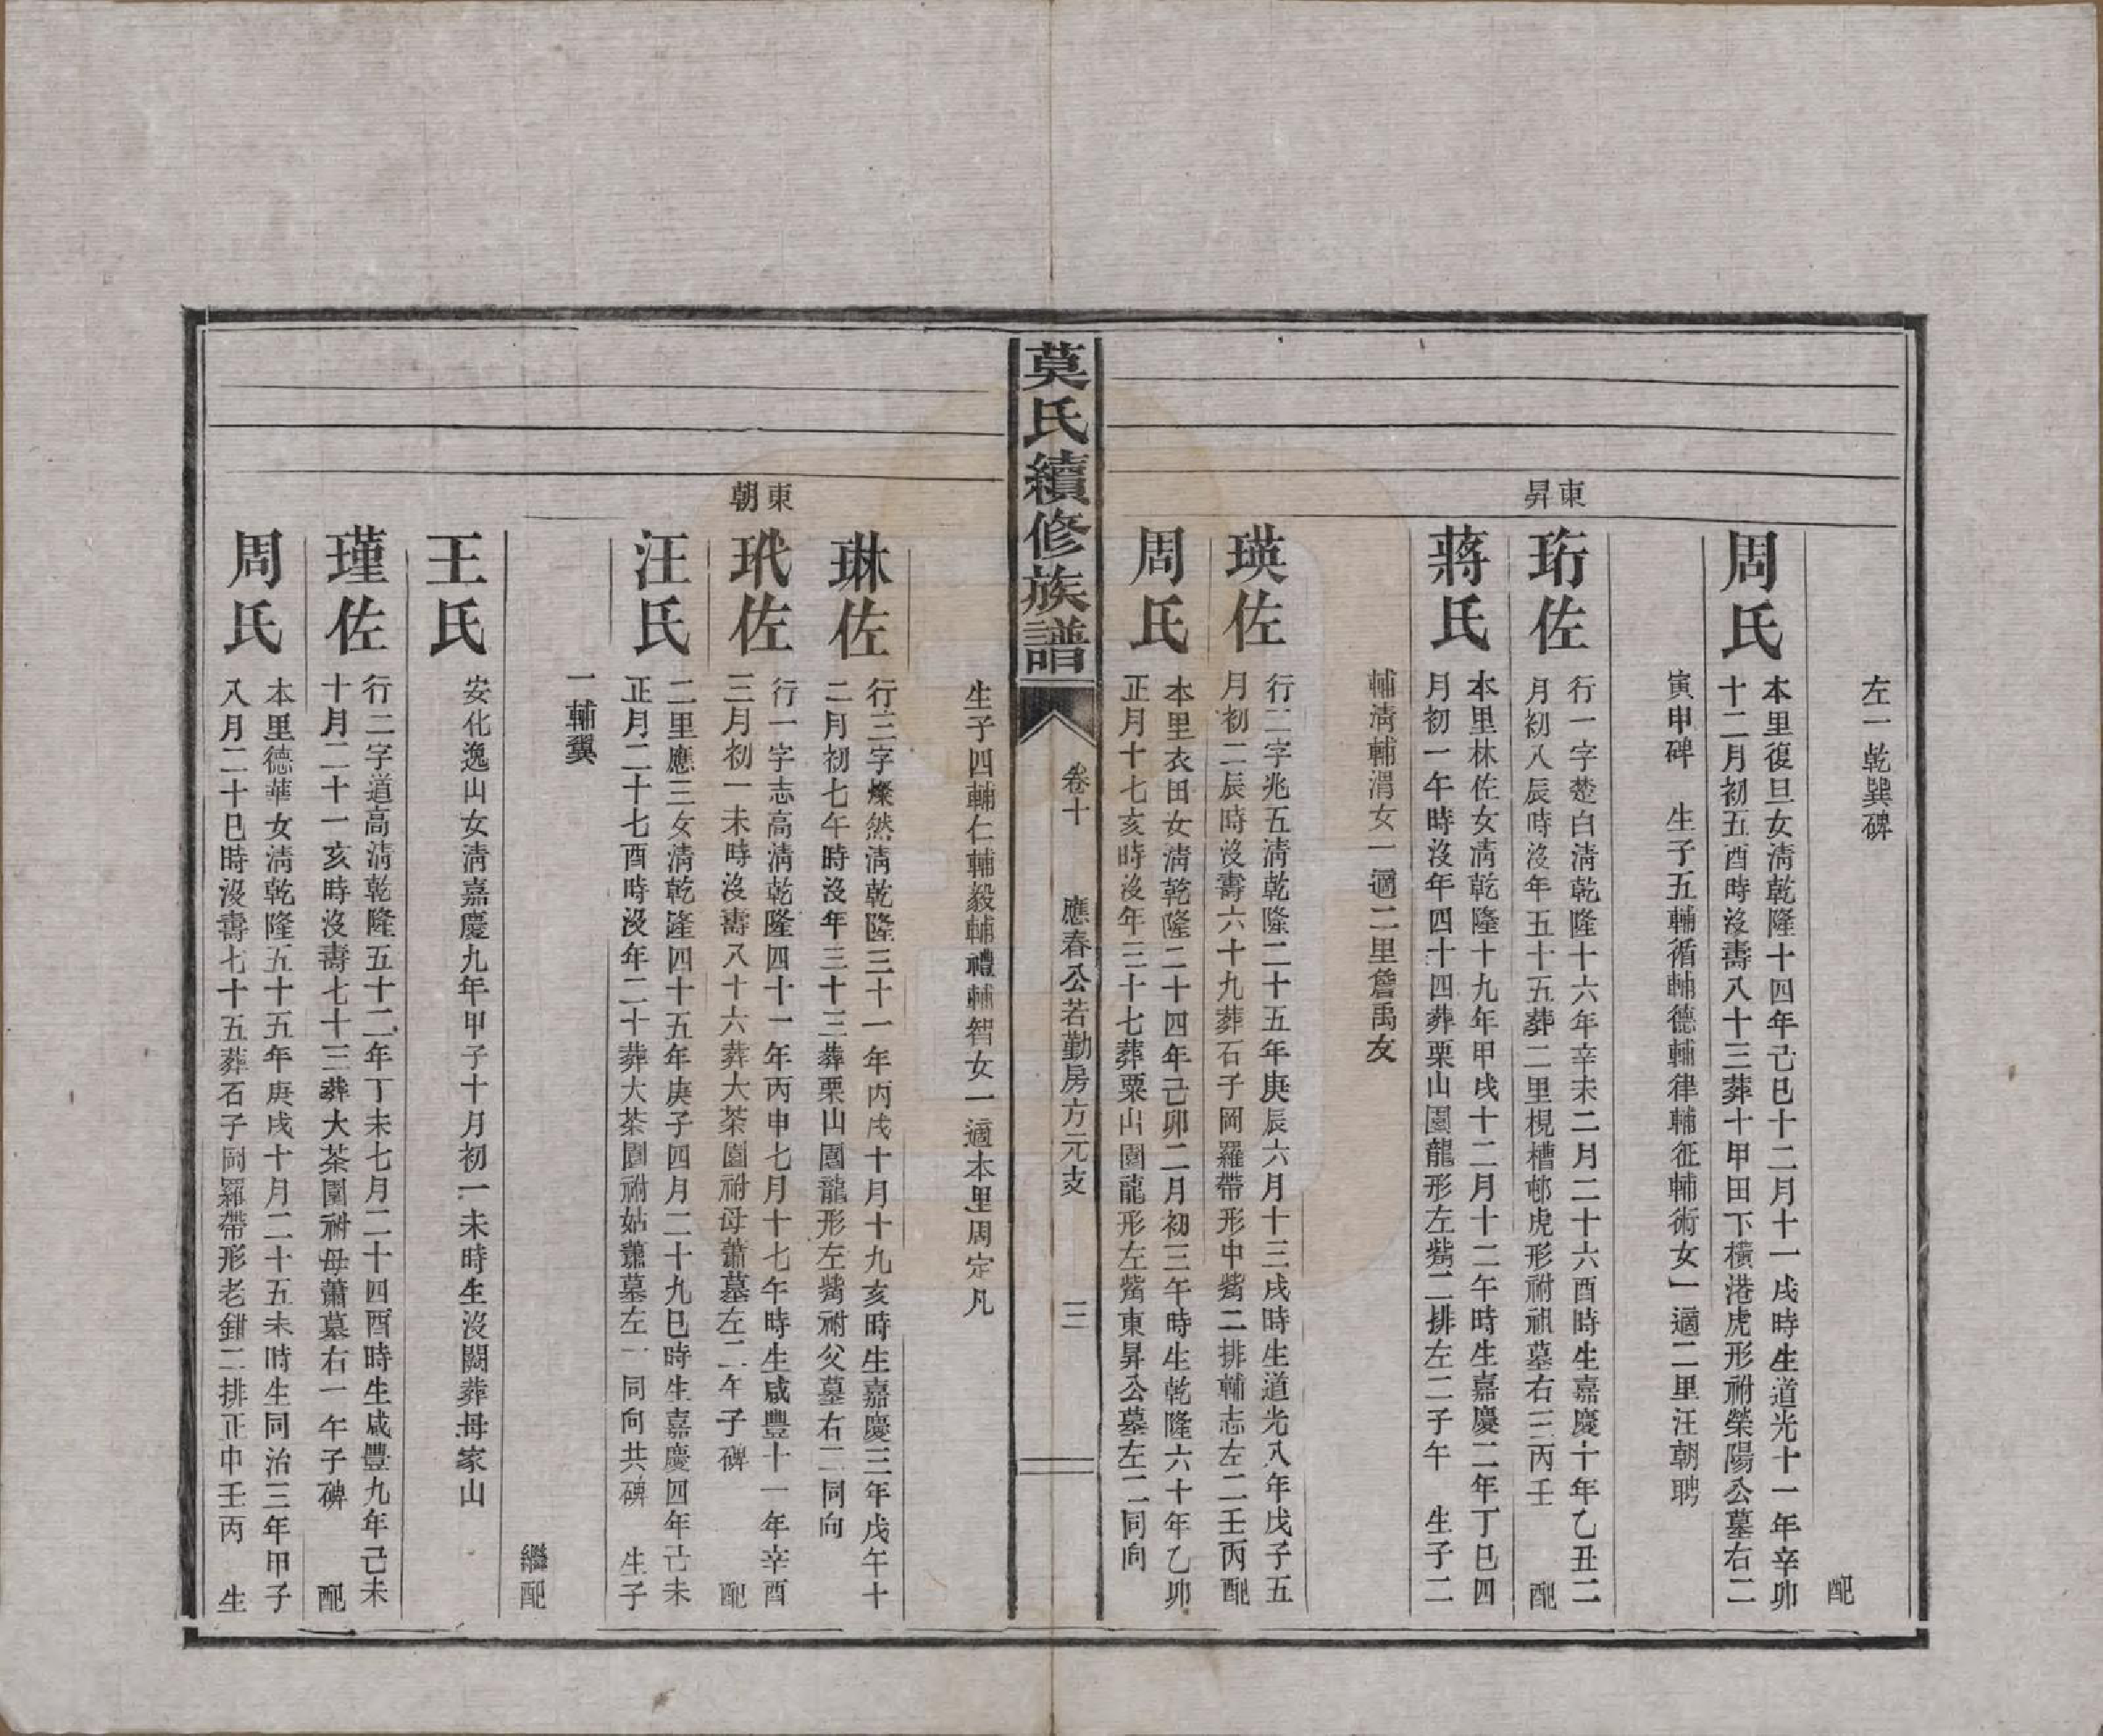 左一乾巽碑
配
周氏
本里復旦女淸乾隆十四年己巳十二月十一戌時生道光十一年辛卯
十二月初五酉時沒壽八十三葬十甲田下橫港虎形祔榮陽公墓右二
寅申碑　生子五輔循輔德輔律輔征輔術女一適二里汪朝聘
東昇
珩佐
行一字楚白淸乾隆十六年辛未二月二十六酉時生嘉慶十年乙丑二
月初八辰時沒年五十五葬二里梘槽邨虎形祔祖墓右三丙壬　配
蔣氏
本里林佐女淸乾隆十九年甲戌十二月十二午時生嘉慶二年丁巳四
月初一午時沒年四十四葬栗山園龍形左觜二排左二子午　生子二
輔淸輔渭女一適二里詹禹友
瑛佐
行二字兆五淸乾隆二十五年庚辰六月十三戌時生道光八年戊子五
月初二辰時沒壽六十九葬石子岡羅帶形中觜二排輔志左二壬丙配
周氏
本里衣田女淸乾隆二十四年己卯二月初三午時生乾隆六十年乙卯
正月十七亥時沒年三十七葬粟山園龍形左觜東昇公墓左二同向
莫氏續修族譜
卷十　應春公若勤房方元支　三
生子四輔仁輔毅輔禮輔智女一適本里周定凡
琳佐
行三字燦然淸乾隆三十一年丙戌十月十九亥時生嘉慶三年戊午十
二月初七午時沒年三十三葬栗山園龍形左觜祔父墓右二同向
東朝
玳佐
行一字志高淸乾隆四十一年丙申七月十七午時生咸豐十一年辛酉
三月初一未時沒壽八十六葬大茶園祔母蕭墓左二午子碑　配
汪氏
二里應三女淸乾隆四十五年庚子四月二十九巳時生嘉慶四年己未
正月二十七酉時沒年二十葬大茶園祔姑蕭墓左一同向共碑　生子
一輔翼
繼配
王氏
安化逸山女淸嘉慶九年甲子十月初一未時生沒闕葬母家山
瑾佐
行二字道高淸乾隆五十二年丁未七月二十四酉時生咸豐九年己未
十月二十一亥時沒壽七十三葬大茶園祔母蕭墓右一午子碑　配
周氏
本里德華女淸乾隆五十五年庚戌十月二十五未時生同治三年甲子
八月二十巳時沒壽七十五葬石子岡羅帶形老鉗二排正中壬丙　生